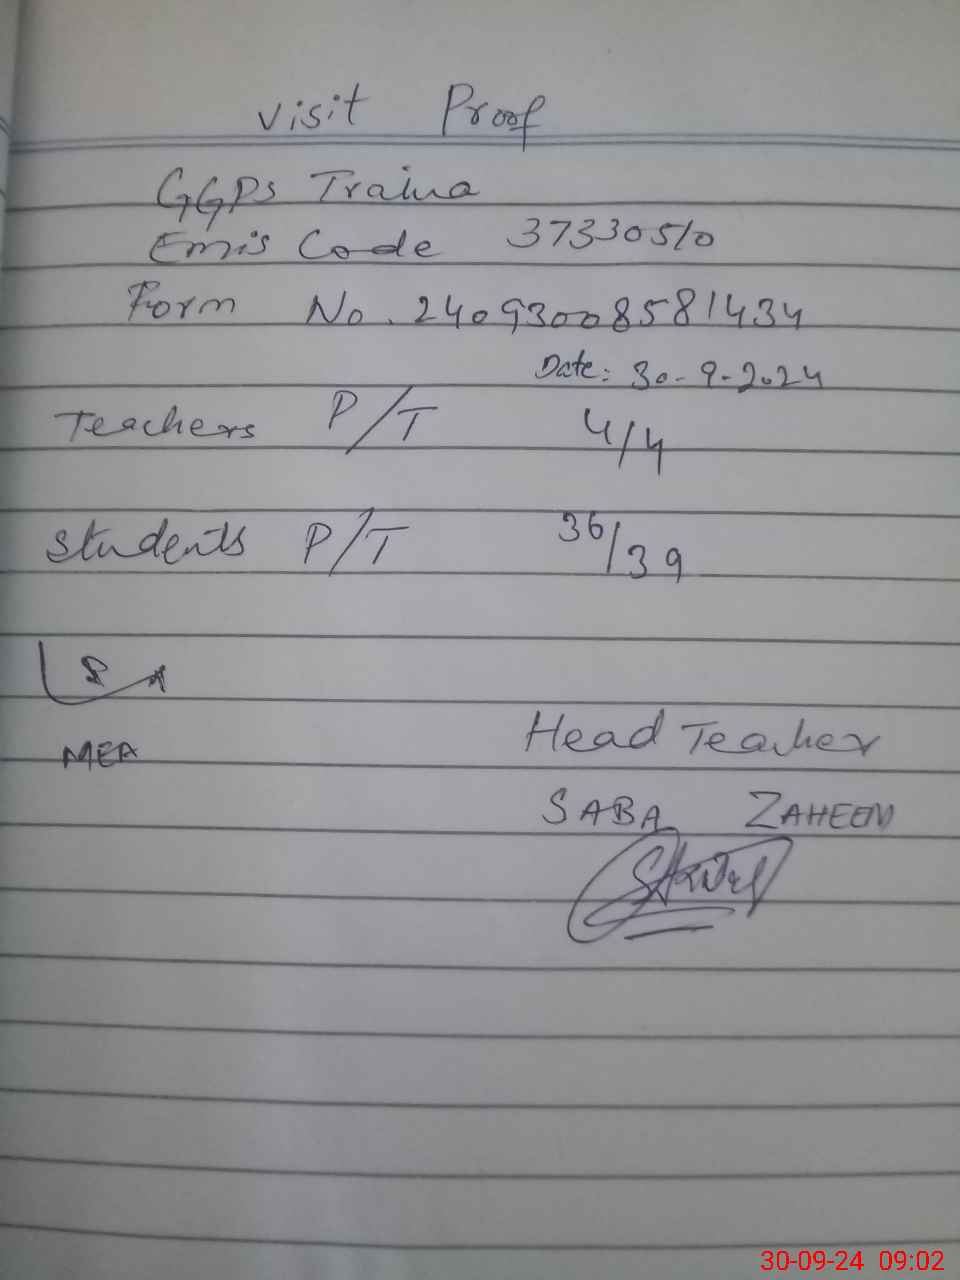 Visit Proof
GGPS Traina
Emis Code 37330510
Form No. 24093008581434
Date: 30-9-2024
Teachers P/T 4/4
Students P/T 36/39
MEA
Head Teacher
SABA ZAHEEN
30-09-24 09:02